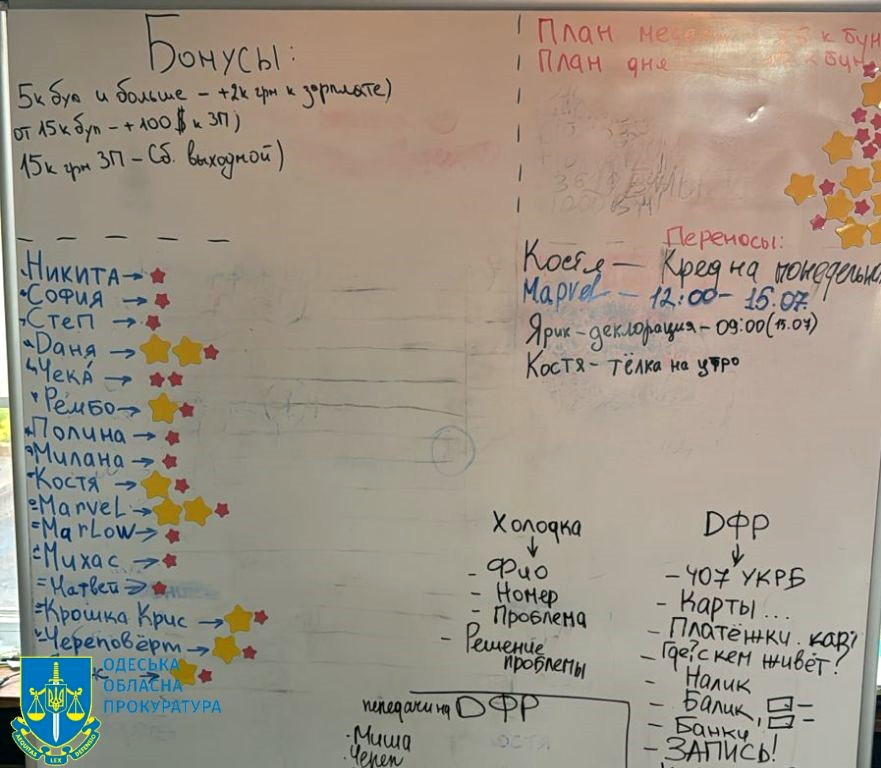 Бонусы:
5к буп и больше - +2к грн к зарплате)
от 15к буп - +100$ к ЗП)
15к грн ЗП - Сб. выходной)
План
План дня
Переносы:
Костя - Кред на понедельн
Marvel - 12:00 - 15.07.
Ярик - деклорация - 09:00 (15.07)
Костя - тёлка на утро
Никита →
София →
Степ →
Даня →
Чека →
Рембо →
Полина →
Милана →
Костя →
Marvel →
Marlow →
Михас →
Матвей →
Крошка Крис →
Череповёрт →
Холодка
- Фио
- Номер
- Проблема
- Решение проблемы
ДФР
- 407 УКРБ
- Карты...
- Платёжки.
- Где? с кем живёт?
- Налик
- Балик,
- Банки
- ЗАПИСЬ!
передачи на ДФР
· Миша
· Череп
ОДЕСЬКА
ОБЛАСНА
ПРОКУРАТУРА
AEQUITAS LEX DEFENSIO